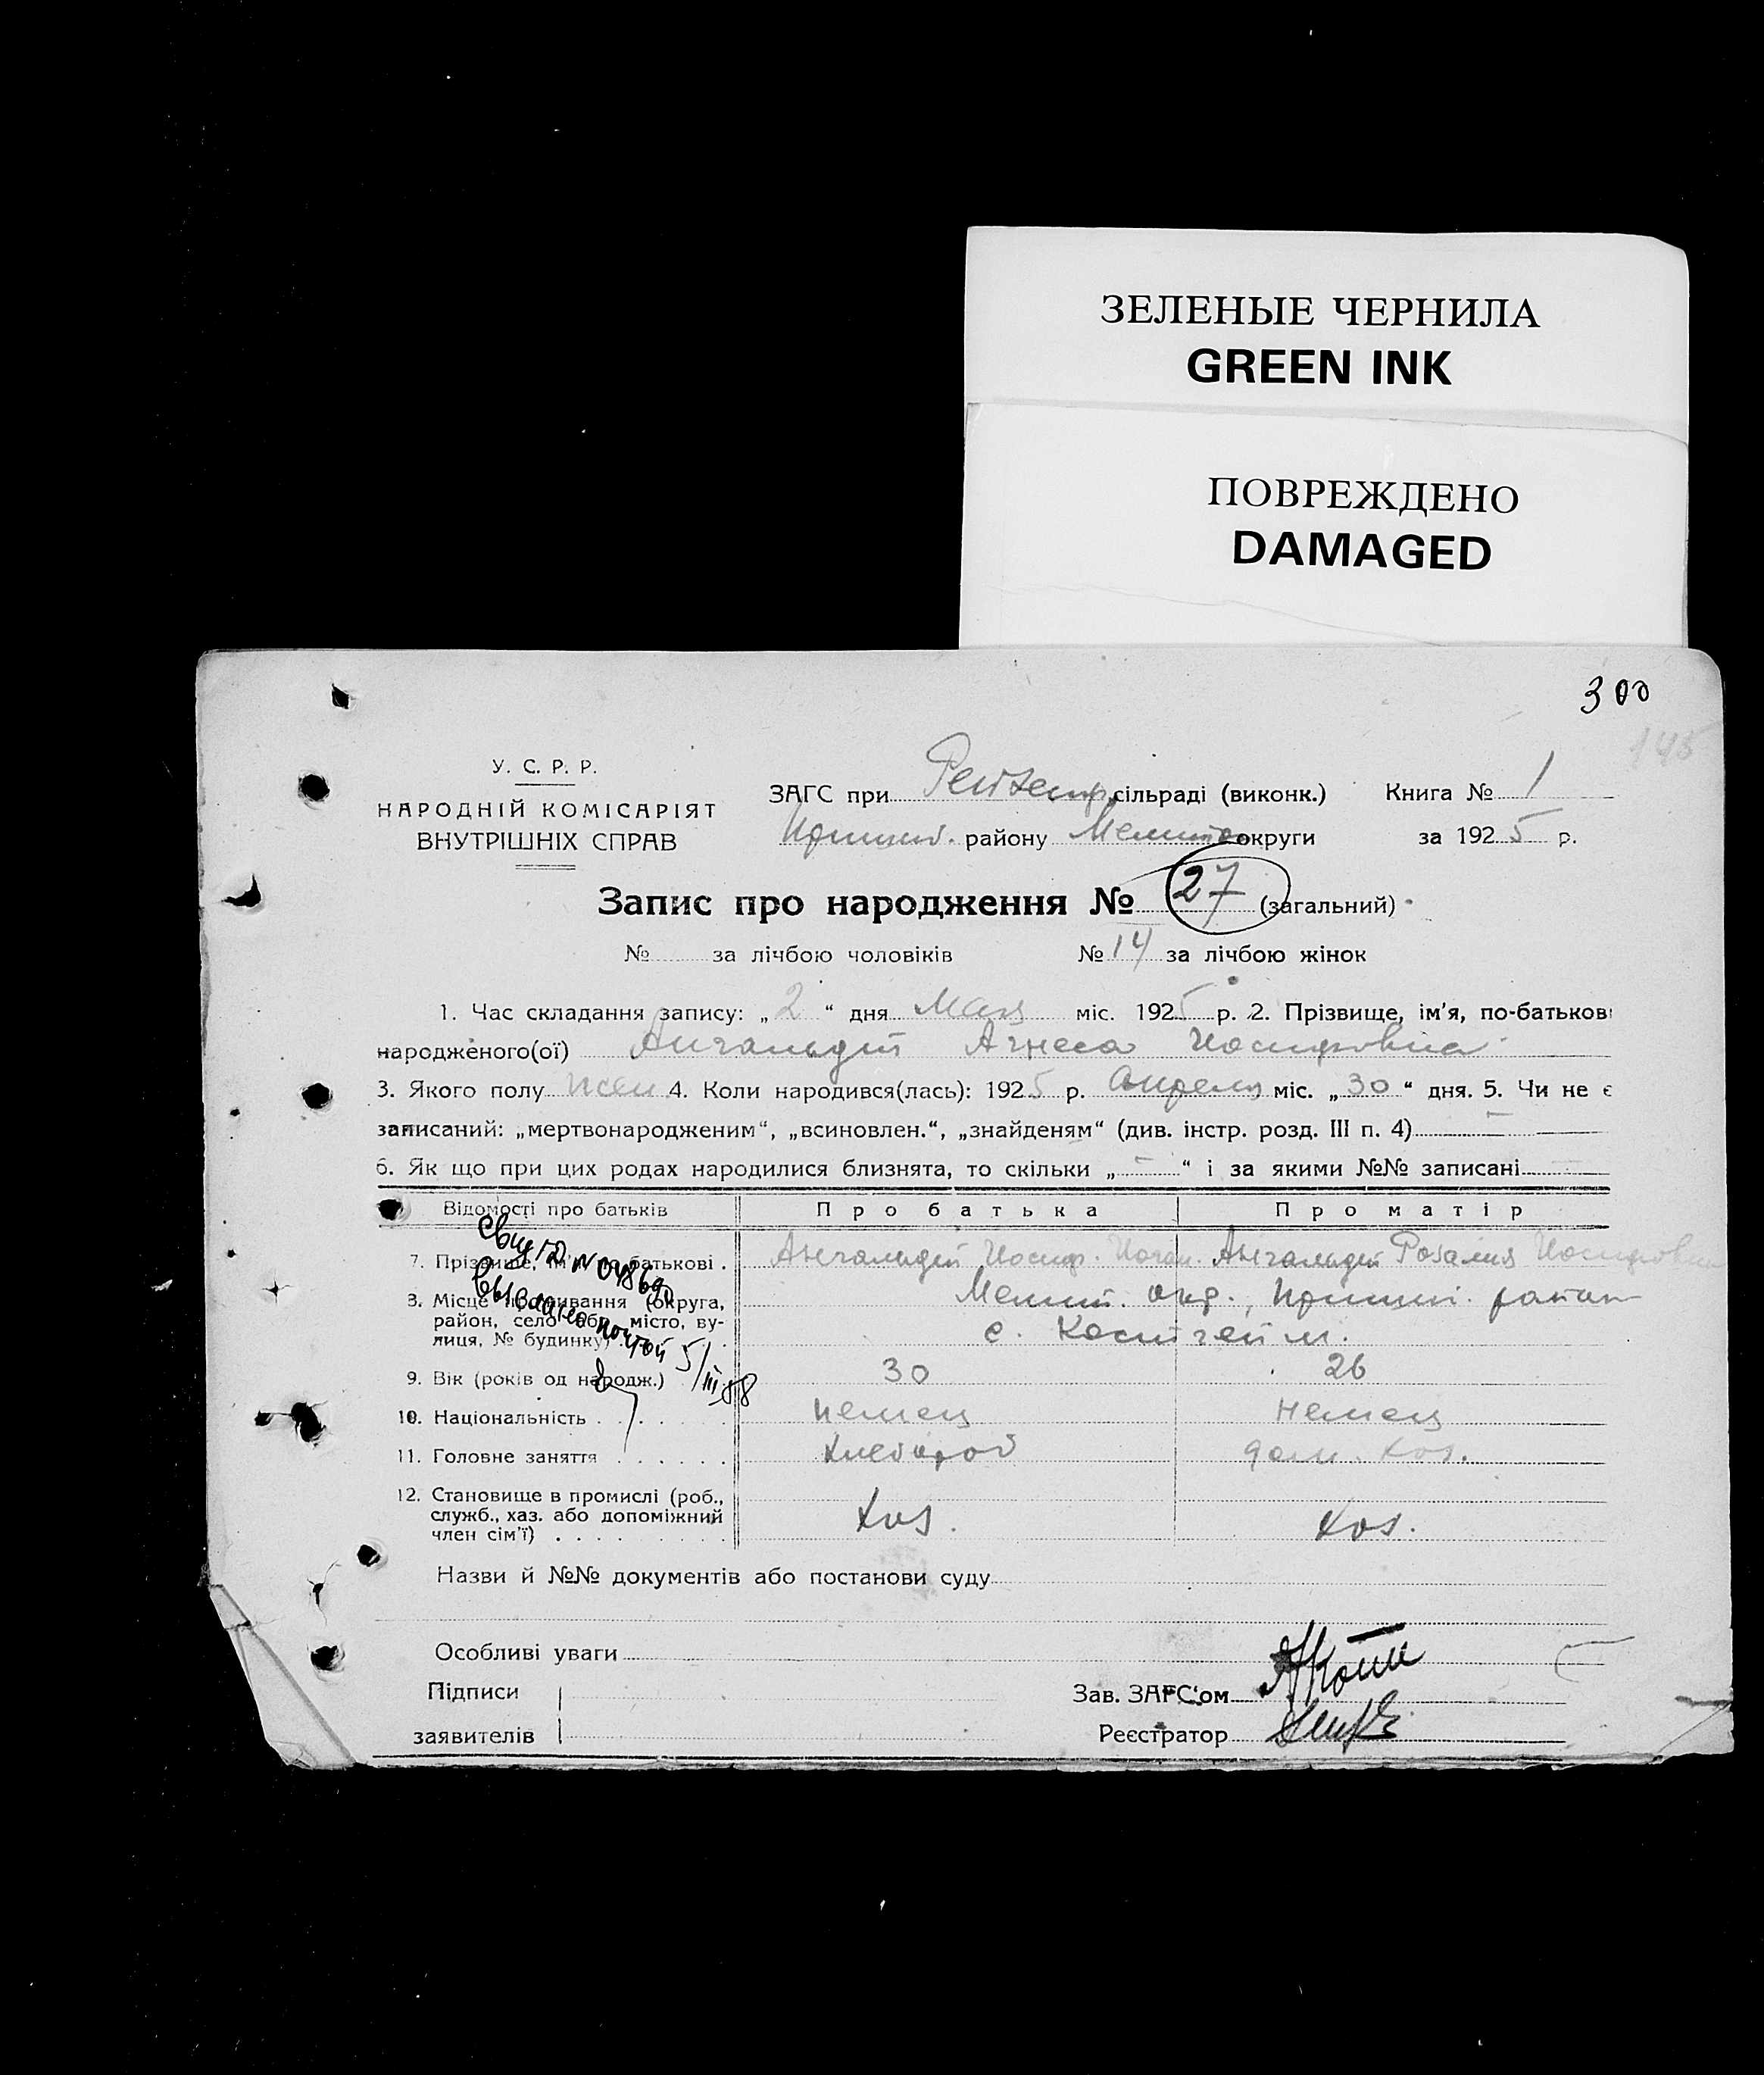 ЗЕЛЕНЫЕ ЧЕРНИЛА
GREEN INK
ПОВРЕЖДЕНО
DAMAGED
300
145
У. С. Р. Р.
НАРОДНІЙ КОМІСАРІЯТ
ВНУТРІШНІХ СПРАВ
ЗАГС при сільраді (виконк.) Книга № 1
Пришиб. району Мелит округи за 1925 р.
Запис про народження № 27 (загальний)
№ за лічбою чоловіків № 14 за лічбою жінок
1. Час складання запису: „2“ дня Мая міс. 1925 р. 2. Прізвище, ім'я, по-батькові
народженого(ої) Ангальдт Агнеса Иосифовна
3. Якого полу жен 4. Коли народився(лась): 1925 р. Апреля міс. „30“ дня. 5. Чи не є
записаний: „мертвонародженим“, „всиновлен.“, „знайденям“ (див. інстр. розд. III п. 4) —
6. Як що при цих родах народилися близнята, то скільки „—“ і за якими №№ записані —
Відомості про батьків Про батька Про матір
7. Прізвище, ім'я, по батькові . Ангальдт Иосиф. Иоган. Ангальдт Розалия Иосифовна
8. Місце проживання (округа, Мелит. окр., Пришиб. район
район, село або місто, ву-
лиця, № будинку) с. Костгейм.
9. Вік (років од народж.) 30 26
10. Національність . . . . . . . немец немец
11. Головне заняття . . . . . . хлебороб дом. хоз.
12. Становище в промислі (роб.,
служб., хаз. або допоміжний хоз. хоз.
член сім'ї) . . . . . . . .
Свид-во № 048690
выслано почтой 5/III-58
Назви й №№ документів або постанови суду
Особливі уваги
Підписи Зав. ЗАГС'ом
заявителів Реєстратор